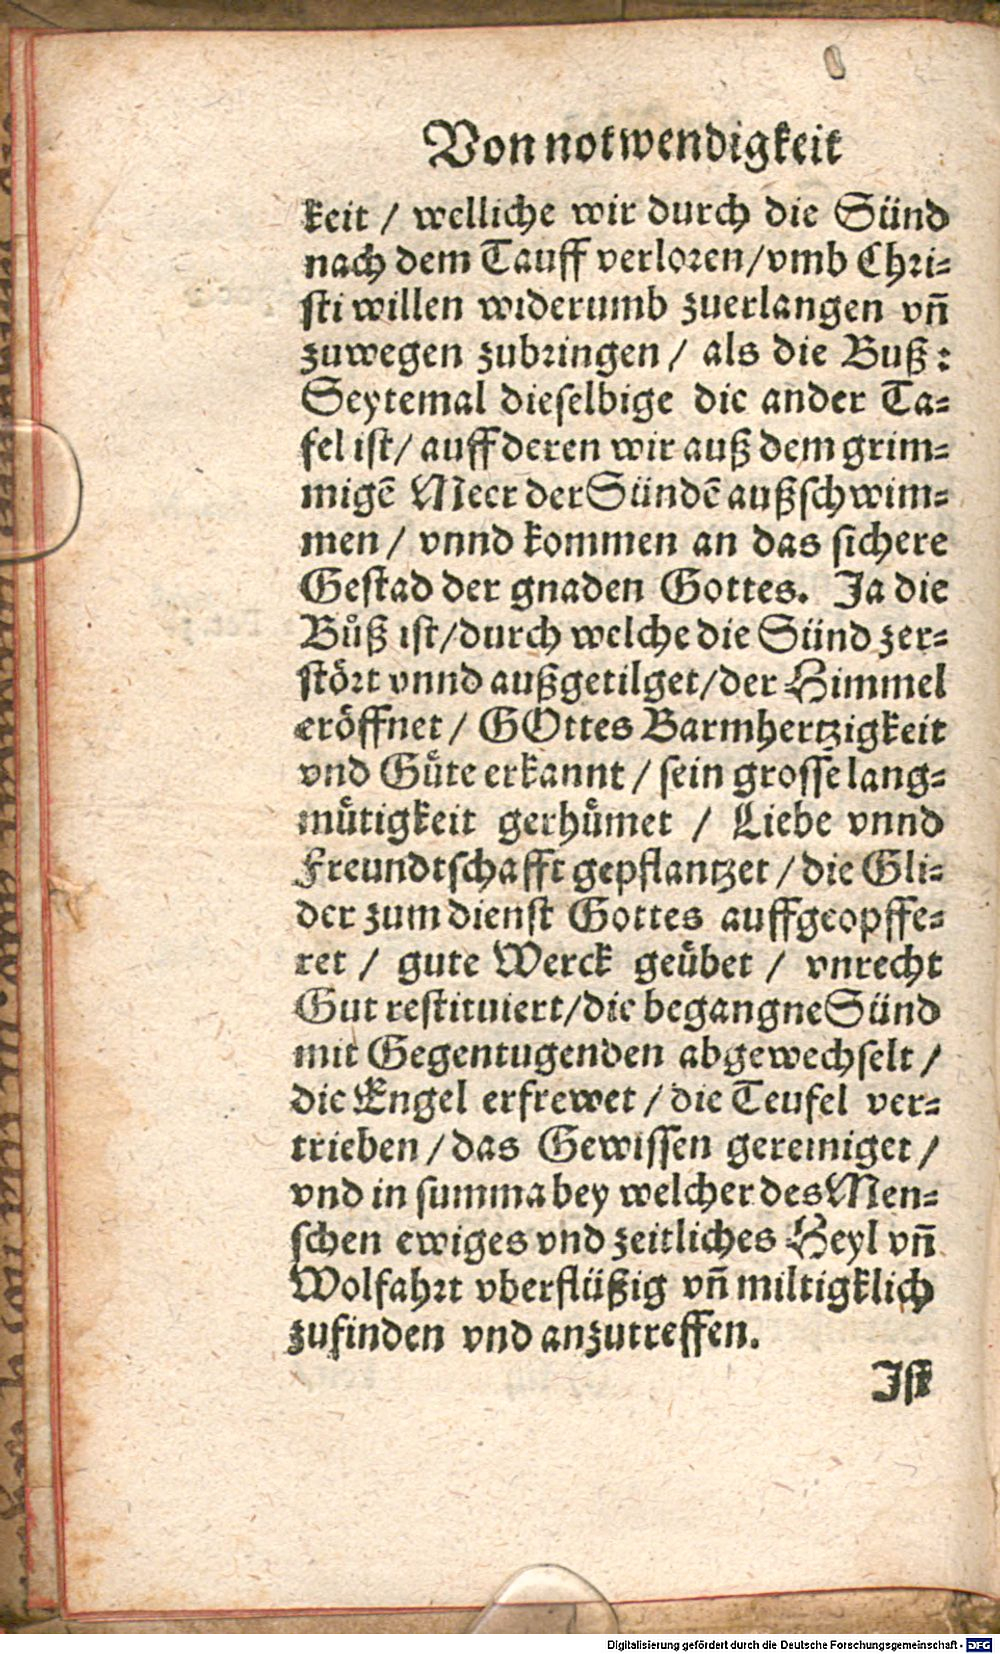 Von notwendigkeit
keit / welliche wir durch die Sünd
nach dem Tauff verloren/vmb Chri-
sti willen widerumb zuerlangen vñ
zuwegen zubringen / als die Buß:
Seytemal dieselbige die ander Ta-
fel ist/ auff deren wir auß dem grim-
migẽ Meer der Sündẽ außschwim-
men / vnnd kommen an das sichere
Gestad der gnaden Gottes. Ja die
Bůß ist/durch welche die Sünd zer-
stört vnnd außgetilget/der Himmel
eröffnet / GOttes Barmhertzigkeit
vnd Güte erkannt / sein grosse lang-
mütigkeit gerhümet / Liebe vnnd
Freundtschafft gepflantzet / die Gli-
der zum dienst Gottes auffgeopffe-
ret / gute Werck geübet / vnrecht
Gut restituiert/die begangne Sünd
mit Gegentugenden abgewechselt /
die Engel erfrewet / die Teufel ver-
trieben / das Gewissen gereiniget /
vnd in summa bey welcher des Men-
schen ewiges vnd zeitliches Heyl vñ
Wolfahrt vberflüßig vñ miltigklich
zufinden vnd anzutreffen.
Ist
Digitalisierung gefördert durch die Deutsche Forschungsgemeinschaft - DFG